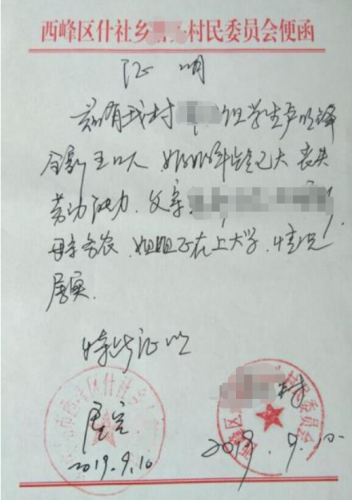 西峰区什社乡 村民委员会便函
证明
兹有我村 组学生
全家五口人 奶奶年龄已大 丧失
劳动能力. 父亲
母亲务农. 姐姐正在上大学. 情况
属实.
特此证明
西峰区什社乡
属实
2019.9.10
村 委员会
2019.9.10